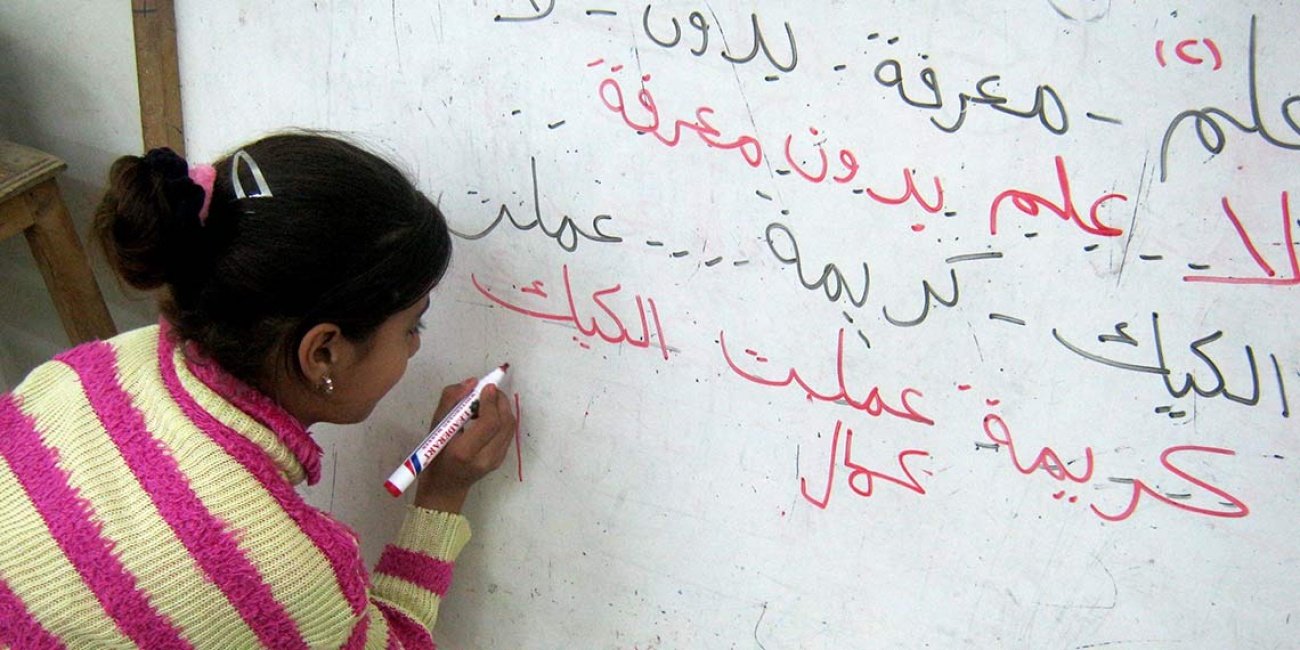 علم - معرفة - بدون - لا
(ح)
لا علم بدون معرفة
الكيك - كريمة - عملت
كريمة عملت الكيك